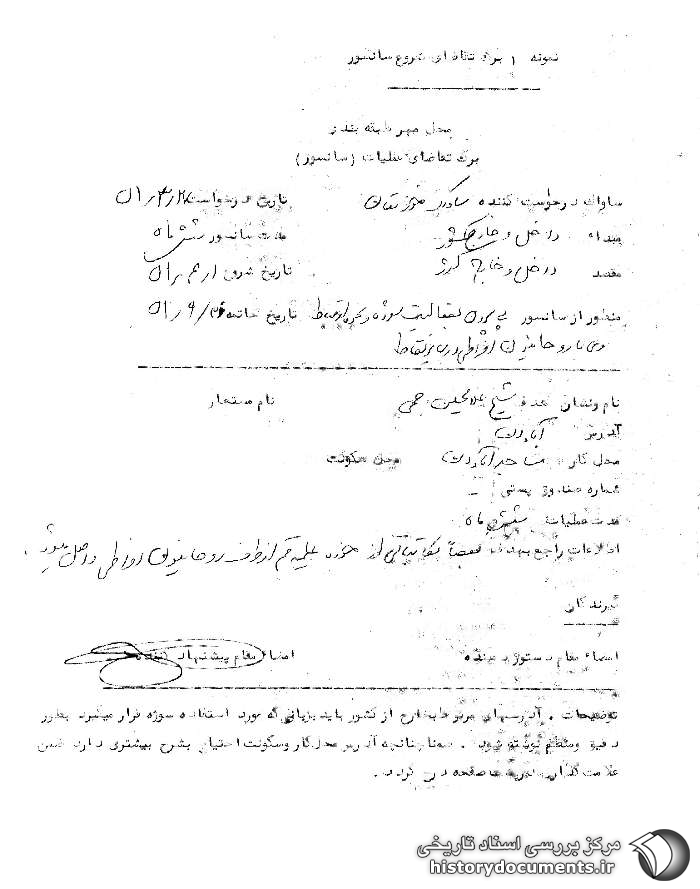 نمونه ۱ برگ تقاضای شروع سانسور
محل مهر طبقه بندی
برگ تقاضای عملیات (سانسور)
ساواک درخواست کننده ساواک خوزستان تاریخ درخواست ۵۱/۳/۲۸
مبداء داخل و خارج کشور مدت سانسور شش ماه
مقصد داخل و خارج کشور تاریخ شروع ۵۱/۴/۱
منظور از سانسور پی بردن بفعالیت سوژه و تاریخ خاتمه ۵۱/۹/
وی با روحانیون افراطی
نام و نشان هدف شیخ غلامحسین جمی نام مستعار
آدرس آبادان
محل کار مساجد آبادان محل سکونت
شماره صندوق پستی -
مدت عملیات شش ماه
اطلاعات راجع بهدف بعضاً مکاتباتی از حوزه علمیه قم از طرف روحانیون افراطی واصل میشود.
گیرندگان
امضاء مقام دستور دهنده امضاء مقام پیشنهاد دهنده
توضیحات . آدرسهای مربوط بخارج از کشور باید بزبانی که مورد استفاده سوژه قرار میگیرد بطور
دقیق و منظم نوشته شود . ضمنا چنانچه آدرس محل کار و سکونت احتیاج بشرح بیشتری دارد ضمن
علامت گذاری صفحه درج گردد .
مرکز بررسی اسناد تاریخی
historydocuments.ir